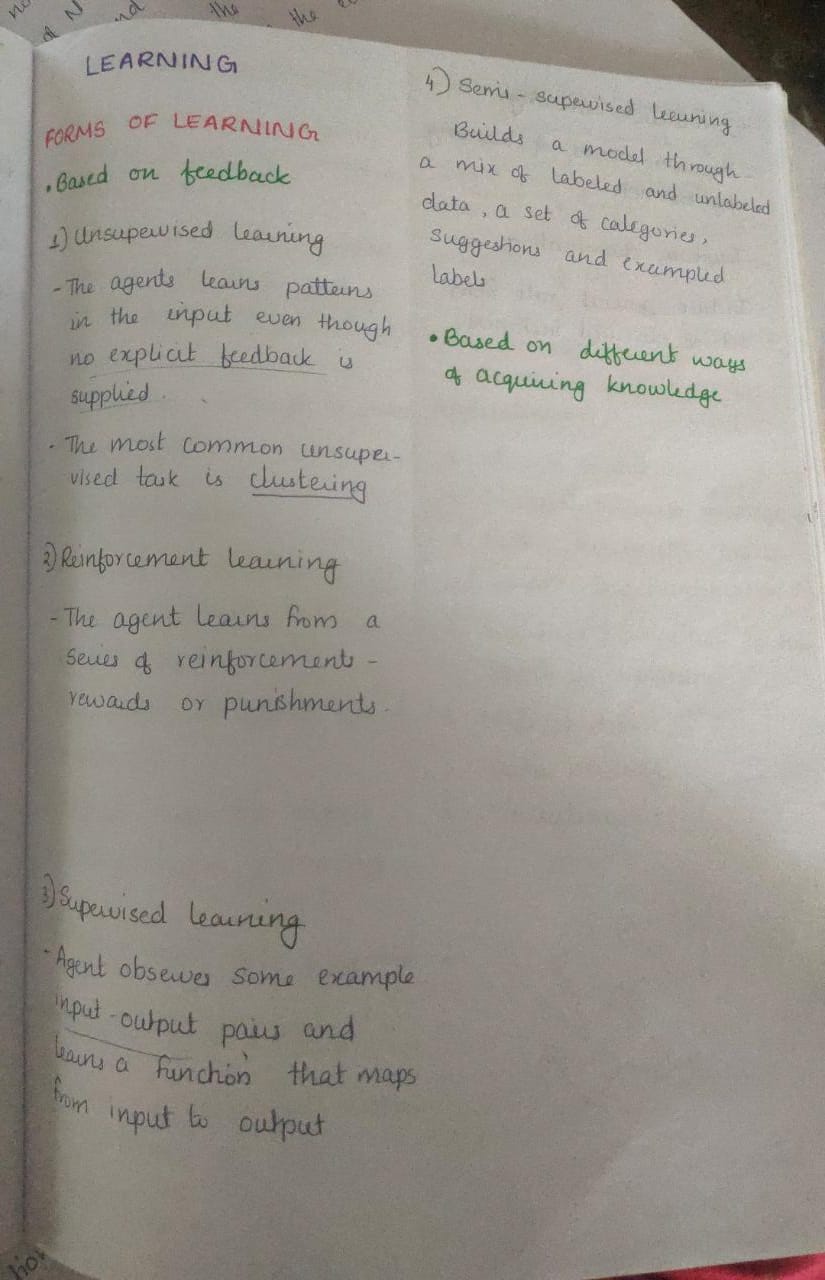 LEARNING
FORMS OF LEARNING
• Based on feedback
1) Unsupervised learning
- The agents learns patterns
in the input even though
no explicit feedback is
supplied.
- The most common unsuper-
vised task is clustering
2) Reinforcement learning
- The agent learns from a
series of reinforcements -
rewards or punishments.
3) Supervised learning
- Agent observes some example
input-output pairs and
learns a function that maps
from input to output
4) Semi-supervised learning
Builds a model through
a mix of labeled and unlabeled
data, a set of categories,
suggestions and exampled
labels
• Based on different ways
of acquiring knowledge
the
the